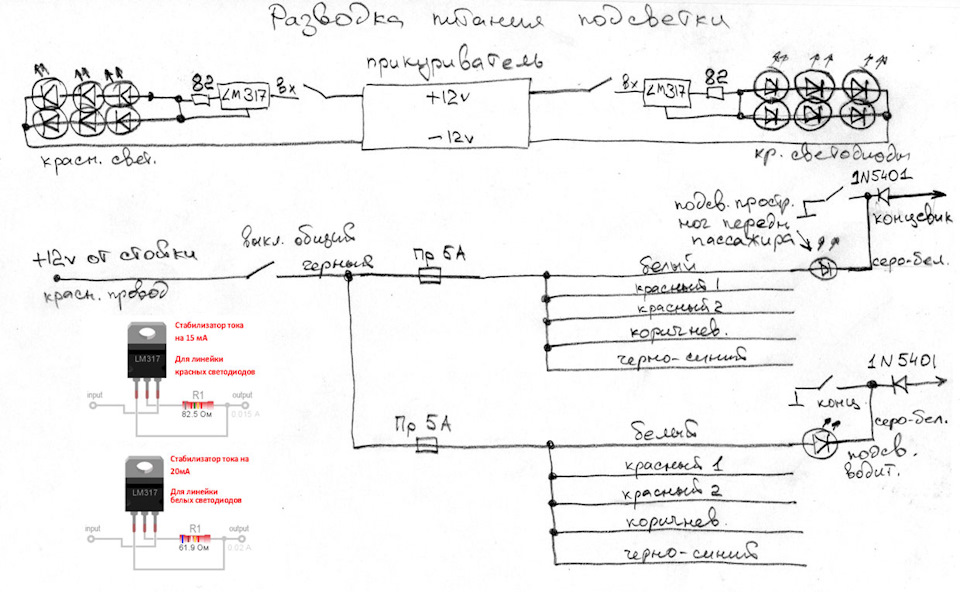 Разводка питания подсветки
прикуриватель
82
LM317
Вх
+12v
-12v
Вх
LM317
82
красн. свет.
кр. светодиоды
1N5401
концевик
подсв. простр.
ног передн.
пассажира
серо-бел.
+12v от стойки
красн. провод
выкл. общий
черный
Пр 5А
белый
красный 1
красный 2
коричнев.
черно-синий
Стабилизатор тока
на 15 мА
Для линейки
красных светодиодов
LM317
input
R1
output
82.5 Ом
0.015 A
1N5401
конц.
серо-бел.
подсв.
водит.
Пр 5А
белый
красный 1
красный 2
коричнев.
черно-синий
Стабилизатор тока на
20мА
Для линейки
белых светодиодов
LM317
input
R1
output
61.9 Ом
0.02 A